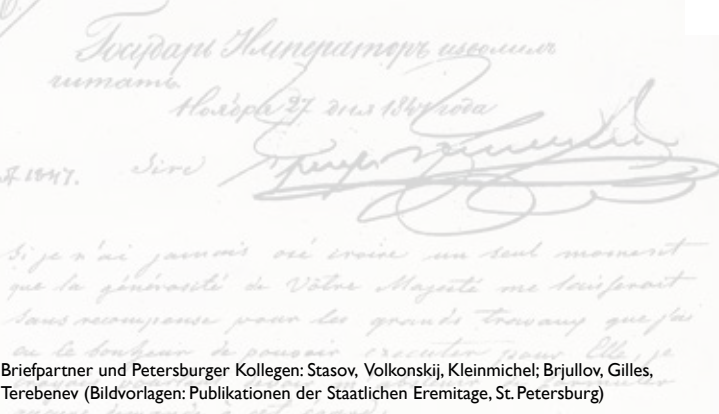 Государь Императоръ изволилъ
читать.
Ноября 27 дня 1847 года
1847. Sire
Si je n'ai jamais osé croire un seul moment
que la générosité de Vôtre Majesté me laisserait
sans recompense pour les grands travaux que j'ai
eu le bonheur de pouvoir executer pour Elle, je
Briefpartner und Petersburger Kollegen: Stasov, Volkonskij, Kleinmichel; Brjullov, Gilles,
Terebenev (Bildvorlagen: Publikationen der Staatlichen Eremitage, St. Petersburg)